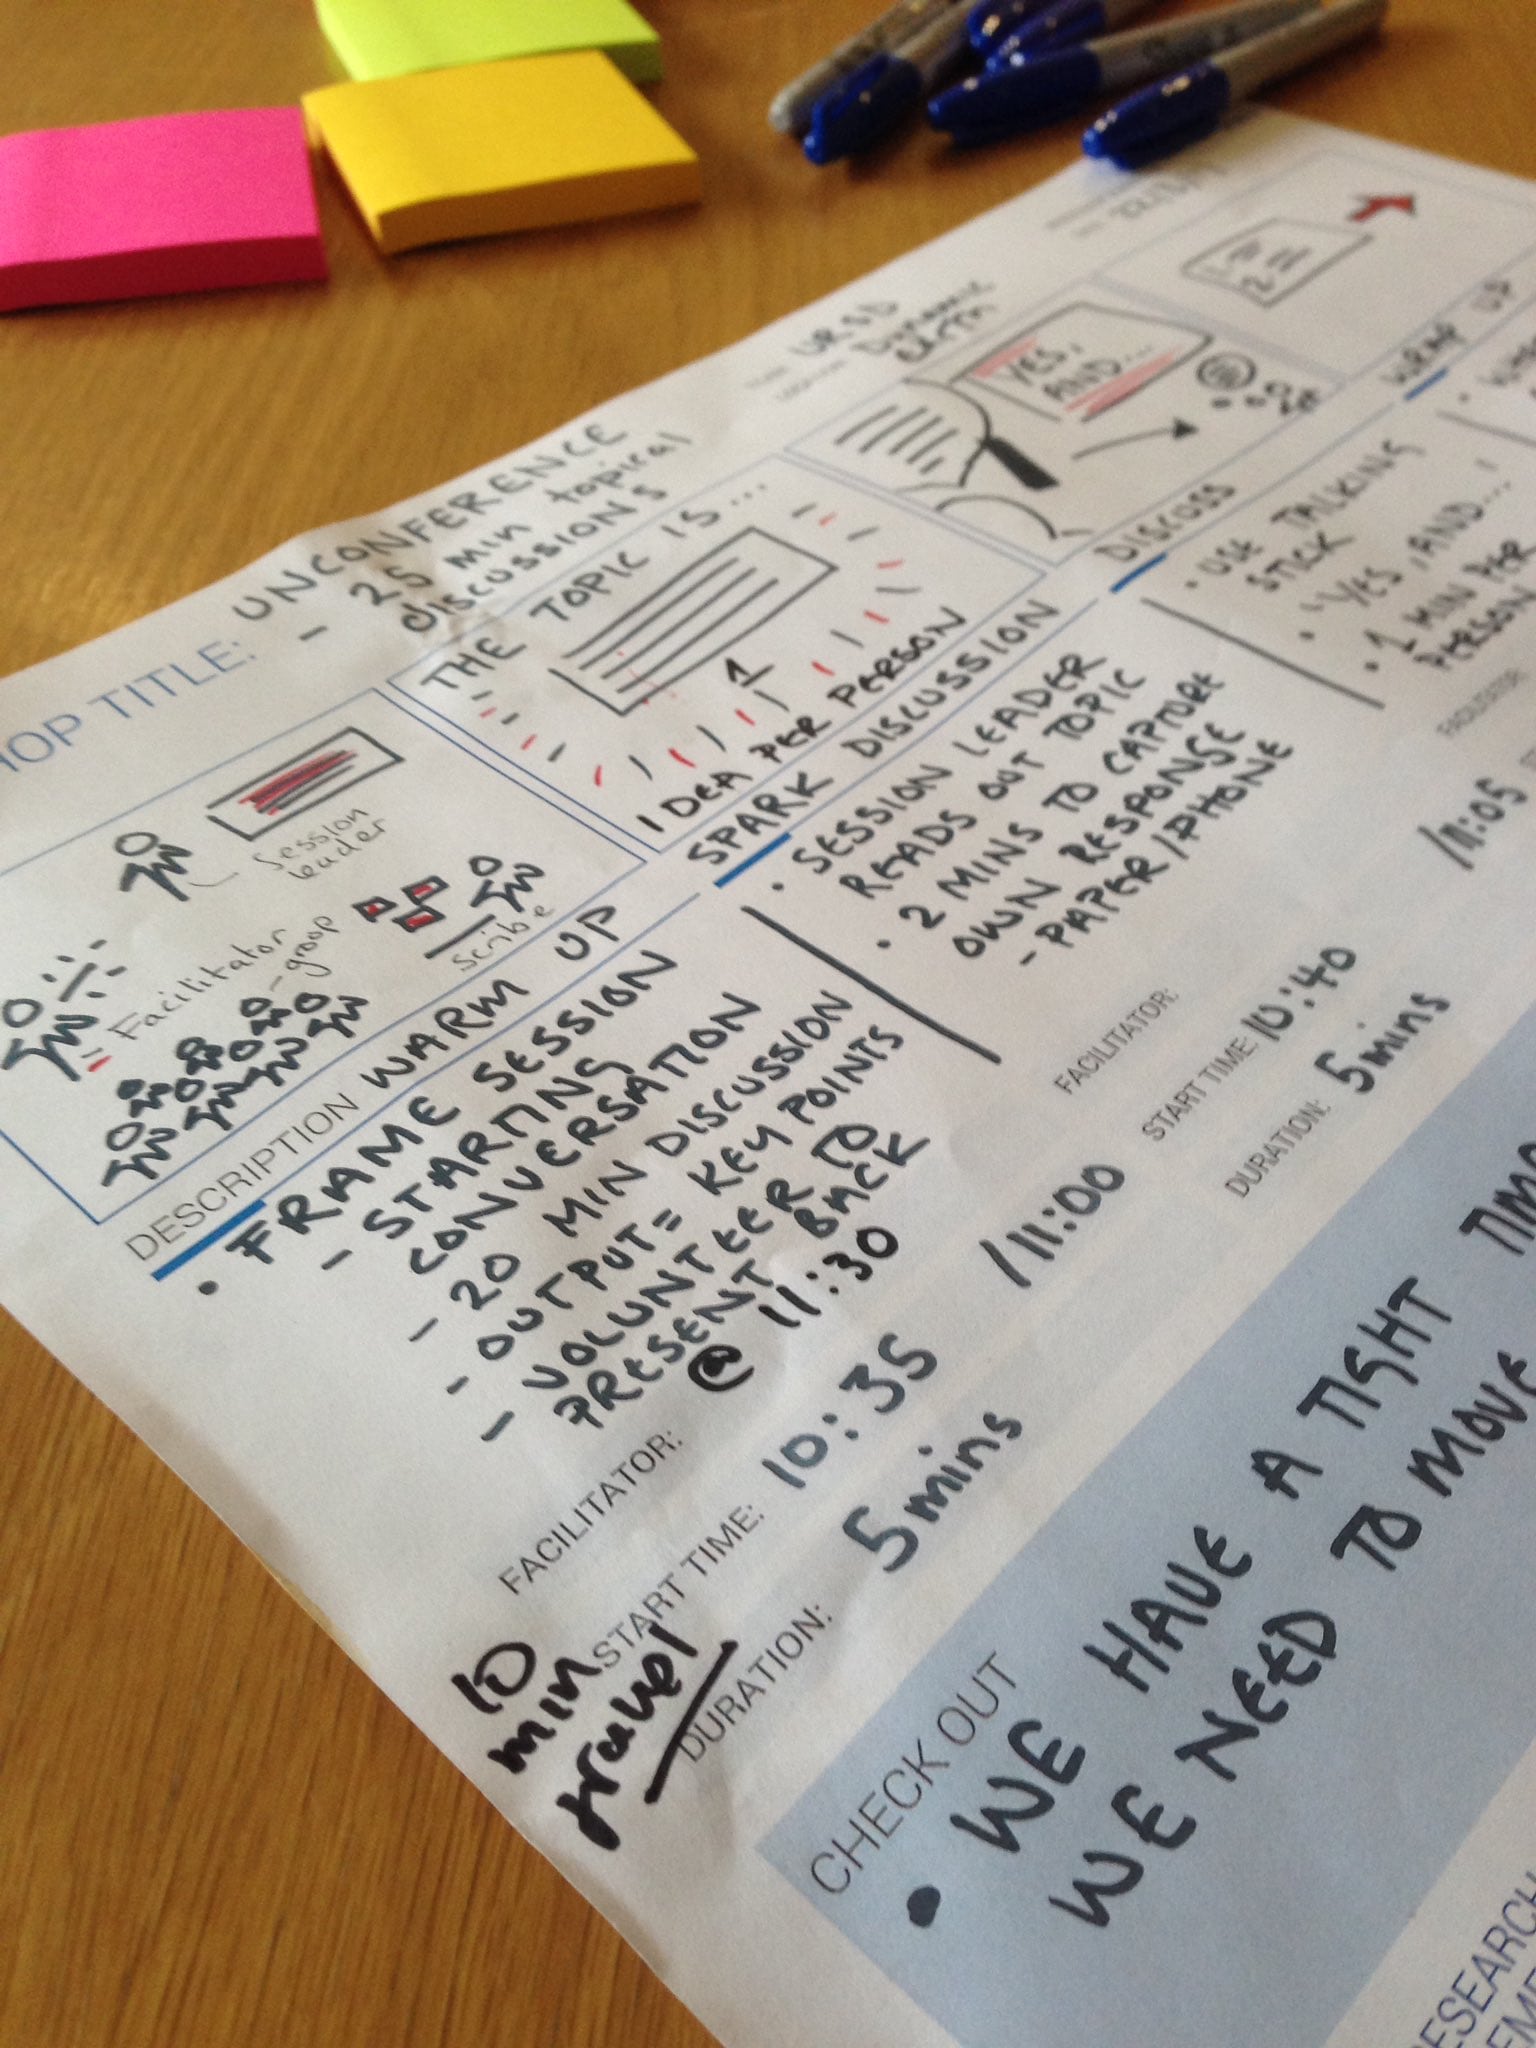 HOP TITLE: UNCONFERENCE
- 25 min topical
discussions
URSD
DYNAMIC
EARTH
Session
leader
Facilitator
- group
Scribe
THE TOPIC IS...
1
IDEA PER PERSON
YES,
AND...
DESCRIPTION WARM UP
• FRAME SESSION
- STARTING
CONVERSATION
- 20 MIN DISCUSSION
- OUTPUT = KEY POINTS
- VOLUNTEER TO
PRESENT BACK
@ 11:30
FACILITATOR:
START TIME: 10:35 /11:00
DURATION: 5mins
10
min
travel
SPARK DISCUSSION
• SESSION LEADER
READS OUT TOPIC
• 2 MINS TO CAPTURE
OWN RESPONSE
- PAPER/PHONE
FACILITATOR:
START TIME: 10:40 /11:05
DURATION: 5mins
DISCUSS
• USE TALKING
STICK
• "YES, AND..."
• 1 MIN PER
PERSON
FACILITATOR:
WRAP UP
CHECK OUT
• WE HAVE A TIGHT
WE NEED TO MOVE